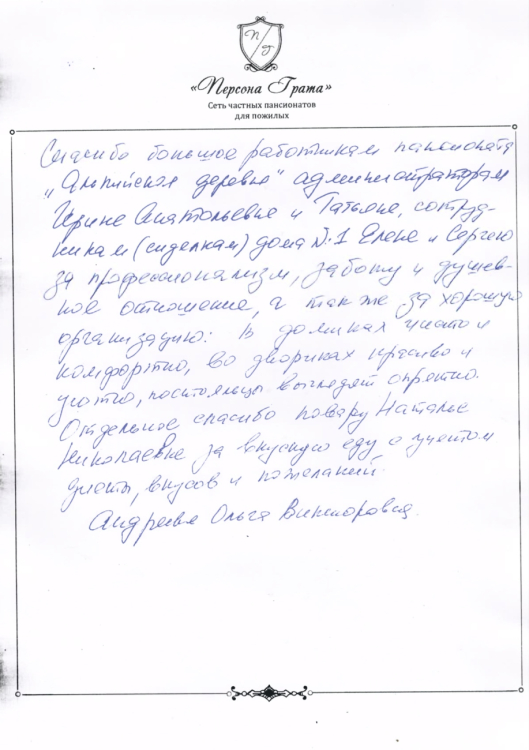 П Г
«Персона Грата»
Сеть частных пансионатов
для пожилых
Спасибо большое работникам пансионата
"Альпийская деревня" администраторам
Ирине Анатольевне и Татьяне, сотруд-
никам (сиделкам) дома №1 Елене и Сергею
за профессионализм, заботу и душев-
ное отношение, а так же за хорошую
организацию: в домиках чисто и
комфортно, во двориках красиво и
уютно, постояльцы выглядят опрятно.
Отдельное спасибо повару Наталье
Николаевне за вкусную еду с учетом
диеты, вкусов и пожеланий.
Андреева Ольга Викторовна.